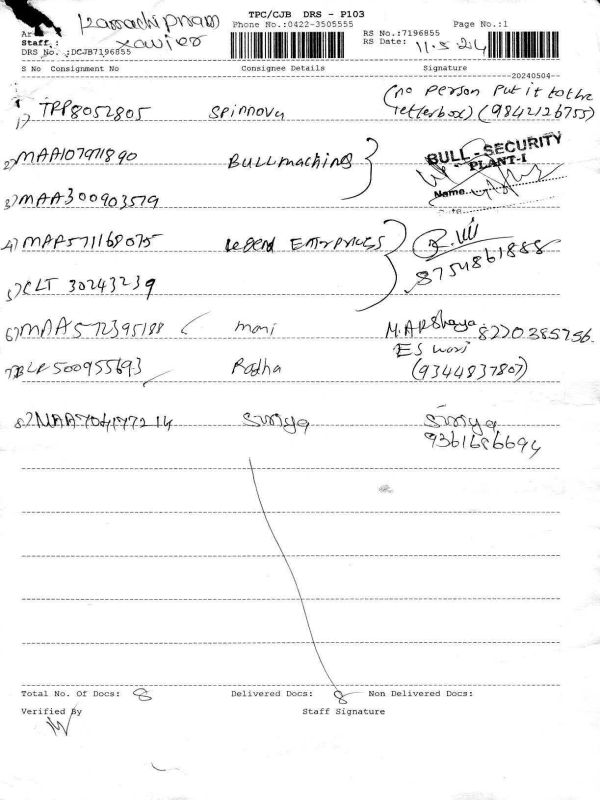 TPC/CJB DRS - P103
Kamachipuram
Phone No.:0422-3505555
Page No.:1
Ar
Staff.:
xavier
RS No.:7196855
RS Date: 11.5.24
DRS No.:DCJB7196855
S No Consignment No Consignee Details Signature
20240504
(no person put it to the
1) TPP8052805 Spinnova letterbox) (9842126755)
2) MAA107971890 BULLmachines
BULL - SECURITY
PLANT-I
Name
3) MAA300903579
4) MAA571168075 Legend Enterprices
8754861888
5) CLT 30243239
6) MAA572395188 mani M.Akshaya. 8220385756.
ESwari
7) BLR500955693 Radha (9344837807)
8) MAA704177214 Suriya Suriya
9361686694
Total No. Of Docs: 8 Delivered Docs: 8 Non Delivered Docs:
Verified By Staff Signature